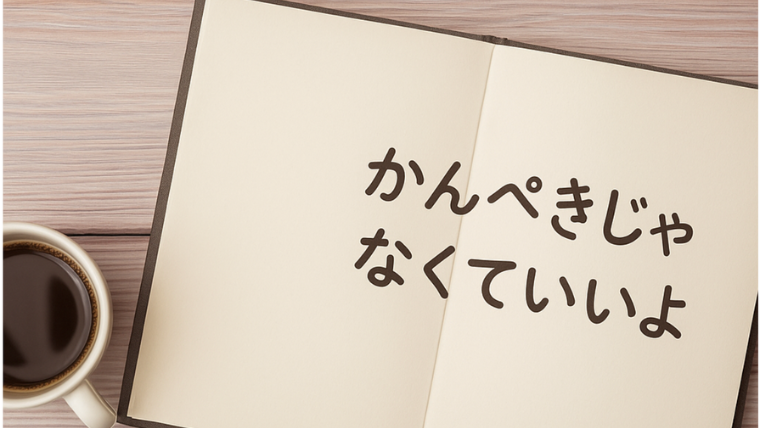 かんぺきじゃ
なくていいよ